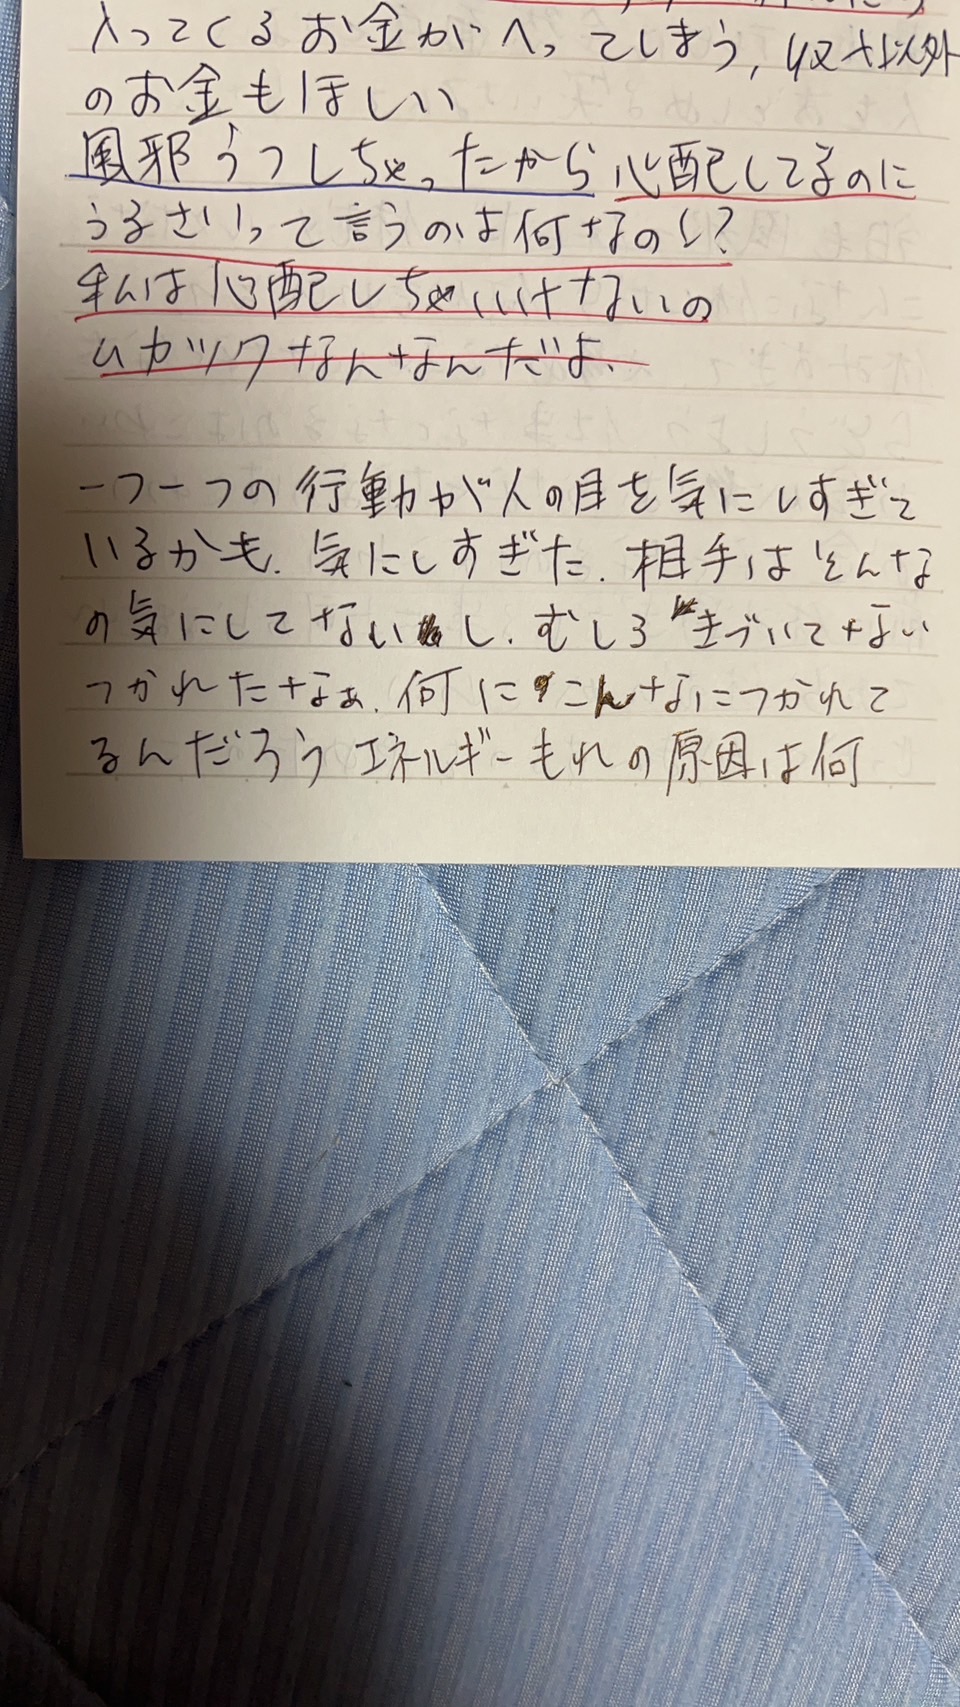 入ってくるお金がへってしまう、収入以外
のお金もほしい
風邪うつしちゃったから心配してるのに
うるさいって言うのは何なの!?
私は心配しちゃいけないの
ムカツクなんなんだよ、
一つ一つの行動が人の目を気にしすぎて
いるかも、気にしすぎた、相手はそんな
の気にしてないし、むしろ気づいてない
つかれたなぁ、何にこんなにつかれて
るんだろう エネルギーもれの原因は何